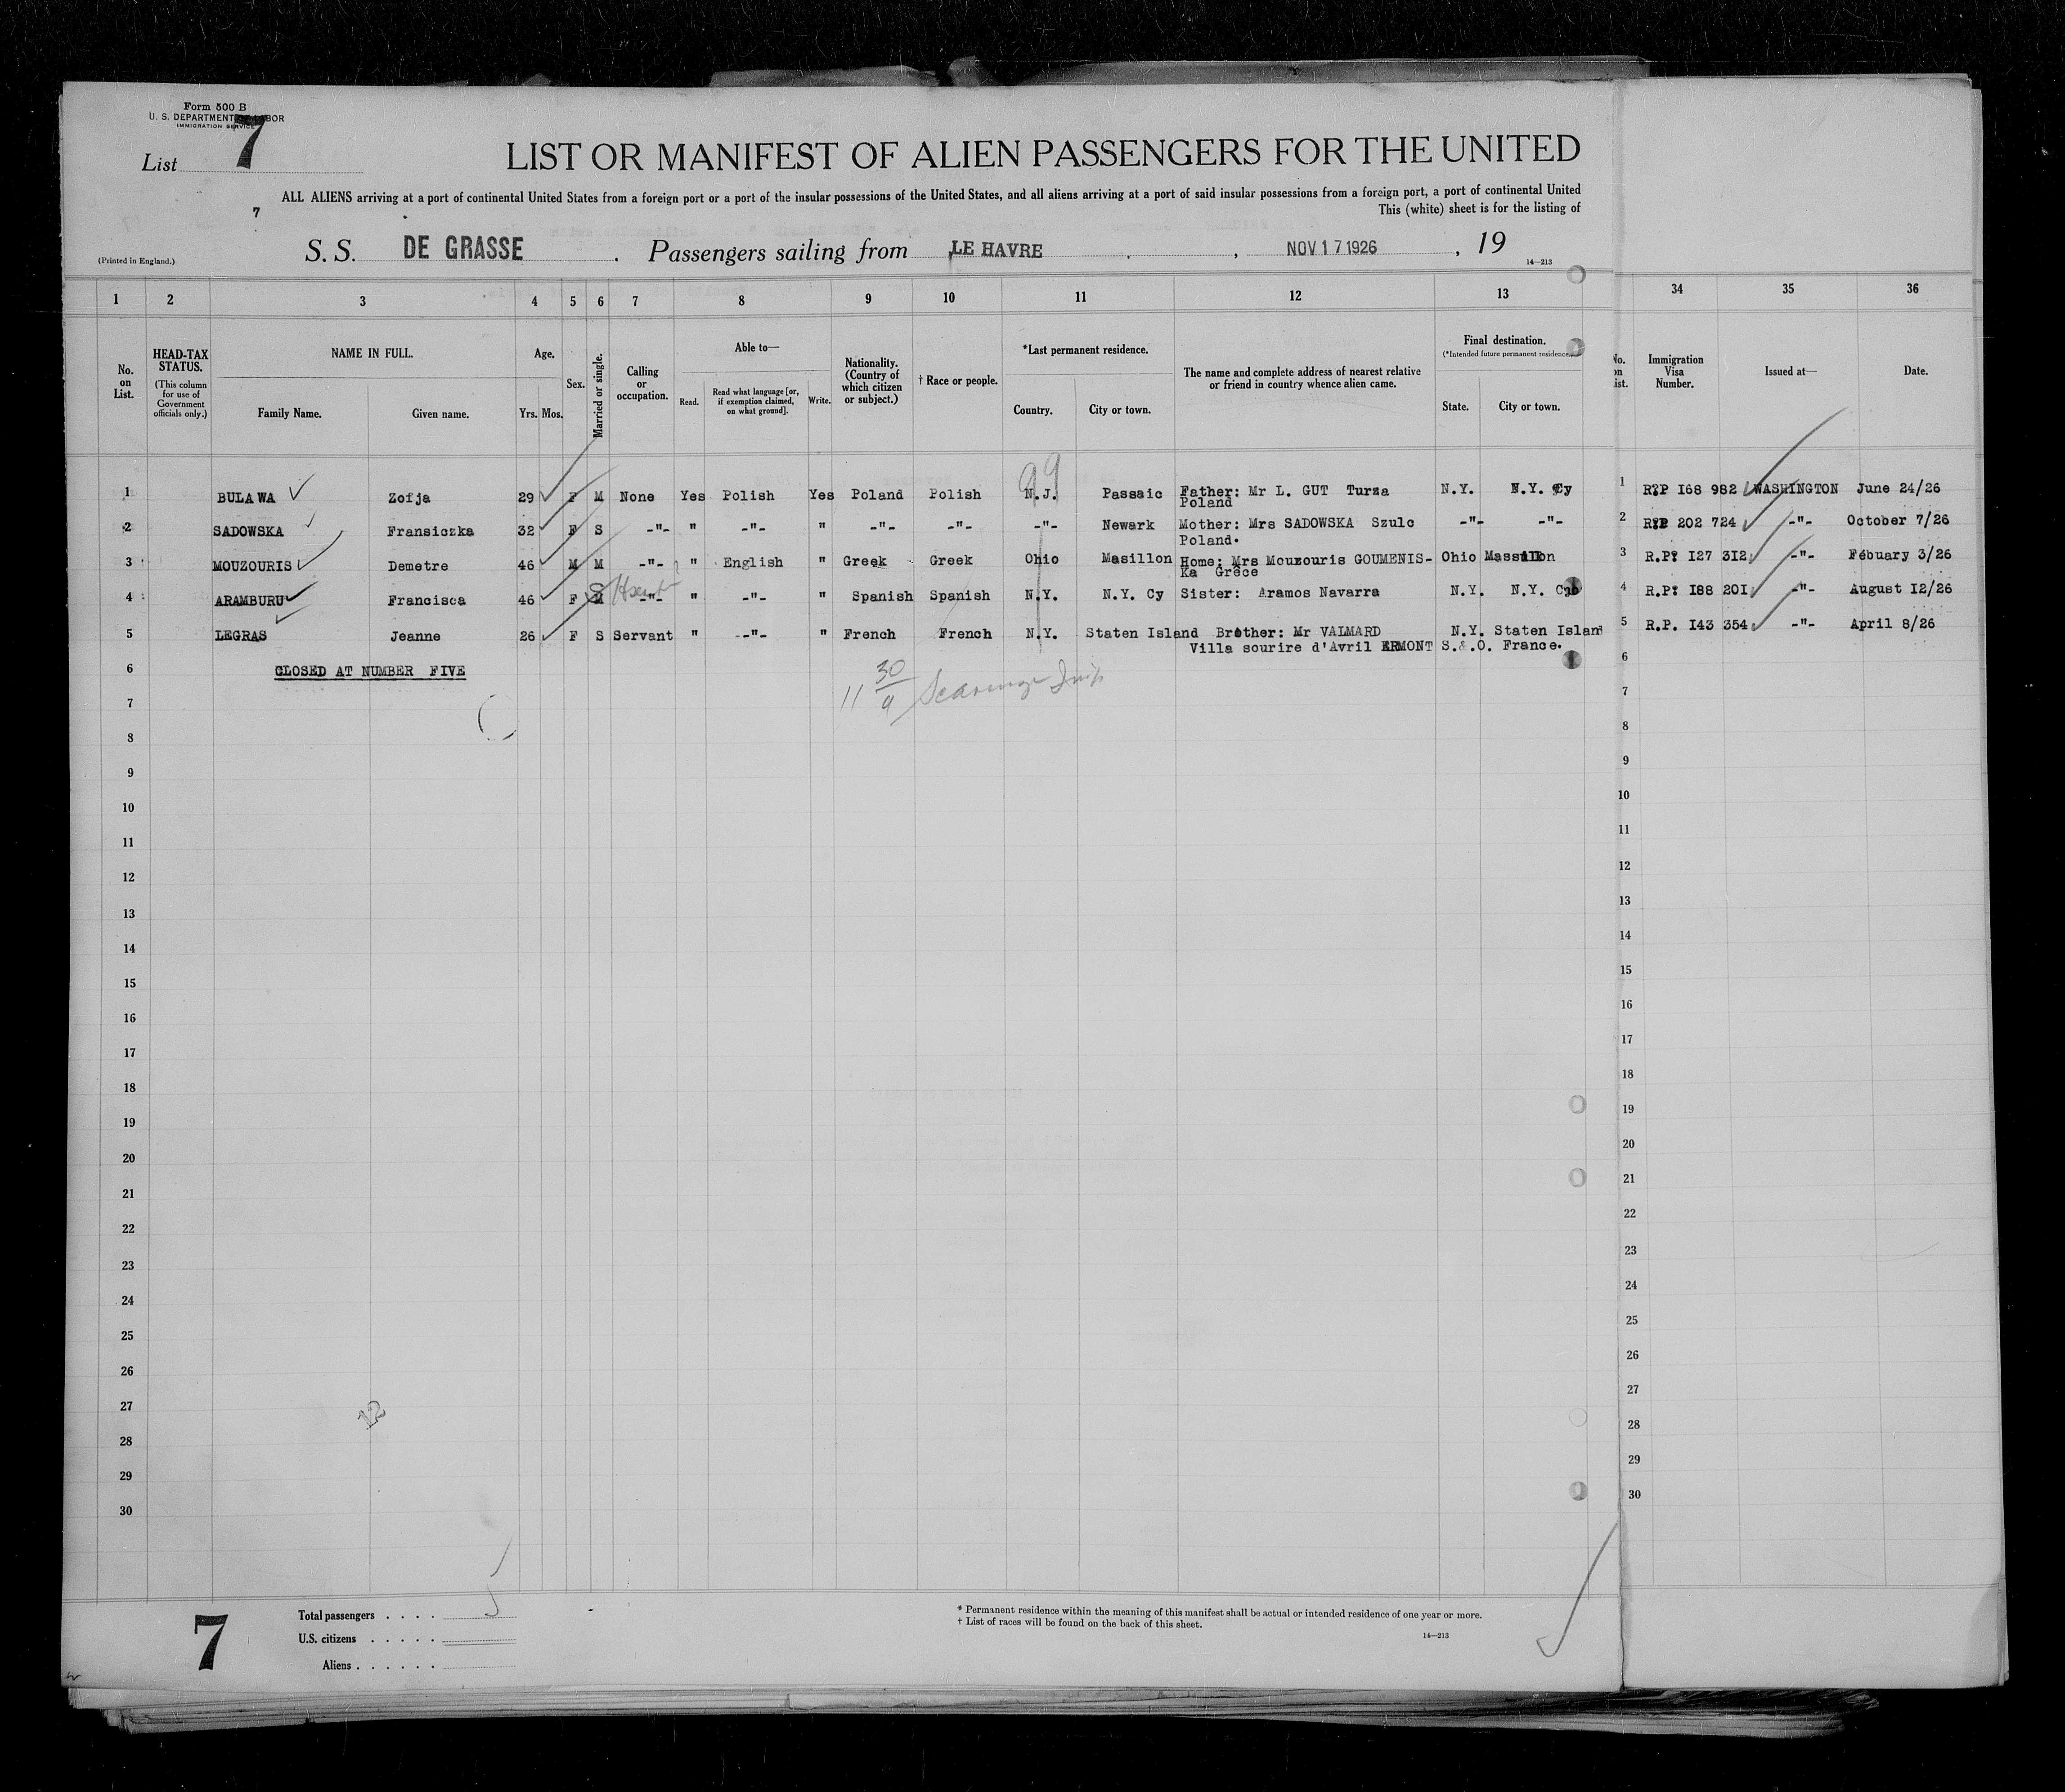 Form 500 B
U. S. DEPARTMENT OF LABOR
IMMIGRATION SERVICE
List 7
LIST OR MANIFEST OF ALIEN PASSENGERS FOR THE UNITED
ALL ALIENS arriving at a port of continental United States from a foreign port or a port of the insular possessions of the United States, and all aliens arriving at a port of said insular possessions from a foreign port, a port of continental United
7 This (white) sheet is for the listing of
(Printed in England.) S. S. DE GRASSE . Passengers sailing from LE HAVRE , NOV 17 1926 , 19
14—213
1 2 3 4 5 6 7 8 9 10 11 12 13 34 35 36
No. on List. HEAD-TAX STATUS. (This column for use of Government officials only.) NAME IN FULL. Family Name. Given name. Age. Yrs. Mos. Sex. Married or single. Calling or occupation. Able to— Read. Read what language [or, if exemption claimed, on what ground]. Write. Nationality. (Country of which citizen or subject.) † Race or people. *Last permanent residence. Country. City or town. The name and complete address of nearest relative or friend in country whence alien came. Final destination. (*Intended future permanent residence.) State. City or town. No. on List. Immigration Visa Number. Issued at— Date.
99
1 BULAWA Zofja 29 F M None Yes Polish Yes Poland Polish N.J. Passaic Father: Mr L. GUT Turza N.Y. N.Y. Cy 1 R?P I68 982 WASHINGTON June 24/26
Poland
2 SADOWSKA Fransiczka 32 F S -"- " -"- " -"- -"- -"- Newark Mother: Mrs SADOWSKA Szulc -"- -"- 2 R?P 202 724 -"- October 7/26
Poland.
3 MOUZOURIS Demetre 46 M M -"- " English " Greek Greek Ohio Masillon Home: Mrs Mouzouris GOUMENIS- Ohio Massillon 3 R.P? I27 3I2 -"- Fébuary 3/26
Ka Grèce
4 ARAMBURU Francisca 46 F S -"- " -"- " Spanish Spanish N.Y. N.Y. Cy Sister: Aramos Navarra N.Y. N.Y. 4 R.P? I88 20I -"- August I2/26
5 LEGRAS Jeanne 26 F S Servant " -"- " French French N.Y. Staten Island Brother: Mr VALMARD N.Y. Staten Island 5 R.P. I43 354 -"- April 8/26
Villa sourire d'Avril ERMONT S.&.O. France.
6 CLOSED AT NUMBER FIVE 6
11 30/9
7 7
8 8
9 9
10 10
11 11
12 12
13 13
14 14
15 15
16 16
17 17
18 18
19 19
20 20
21 21
22 22
23 23
24 24
25 25
26 26
27 27
12
28 28
29 29
30 30
7
Total passengers . . . . 5
U.S. citizens . . . . .
Aliens . . . . . .
* Permanent residence within the meaning of this manifest shall be actual or intended residence of one year or more.
† List of races will be found on the back of this sheet.
14—213